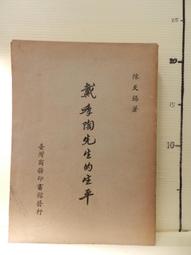 陳天錫著
戴季陶先生的生平
臺灣商務印書館發行